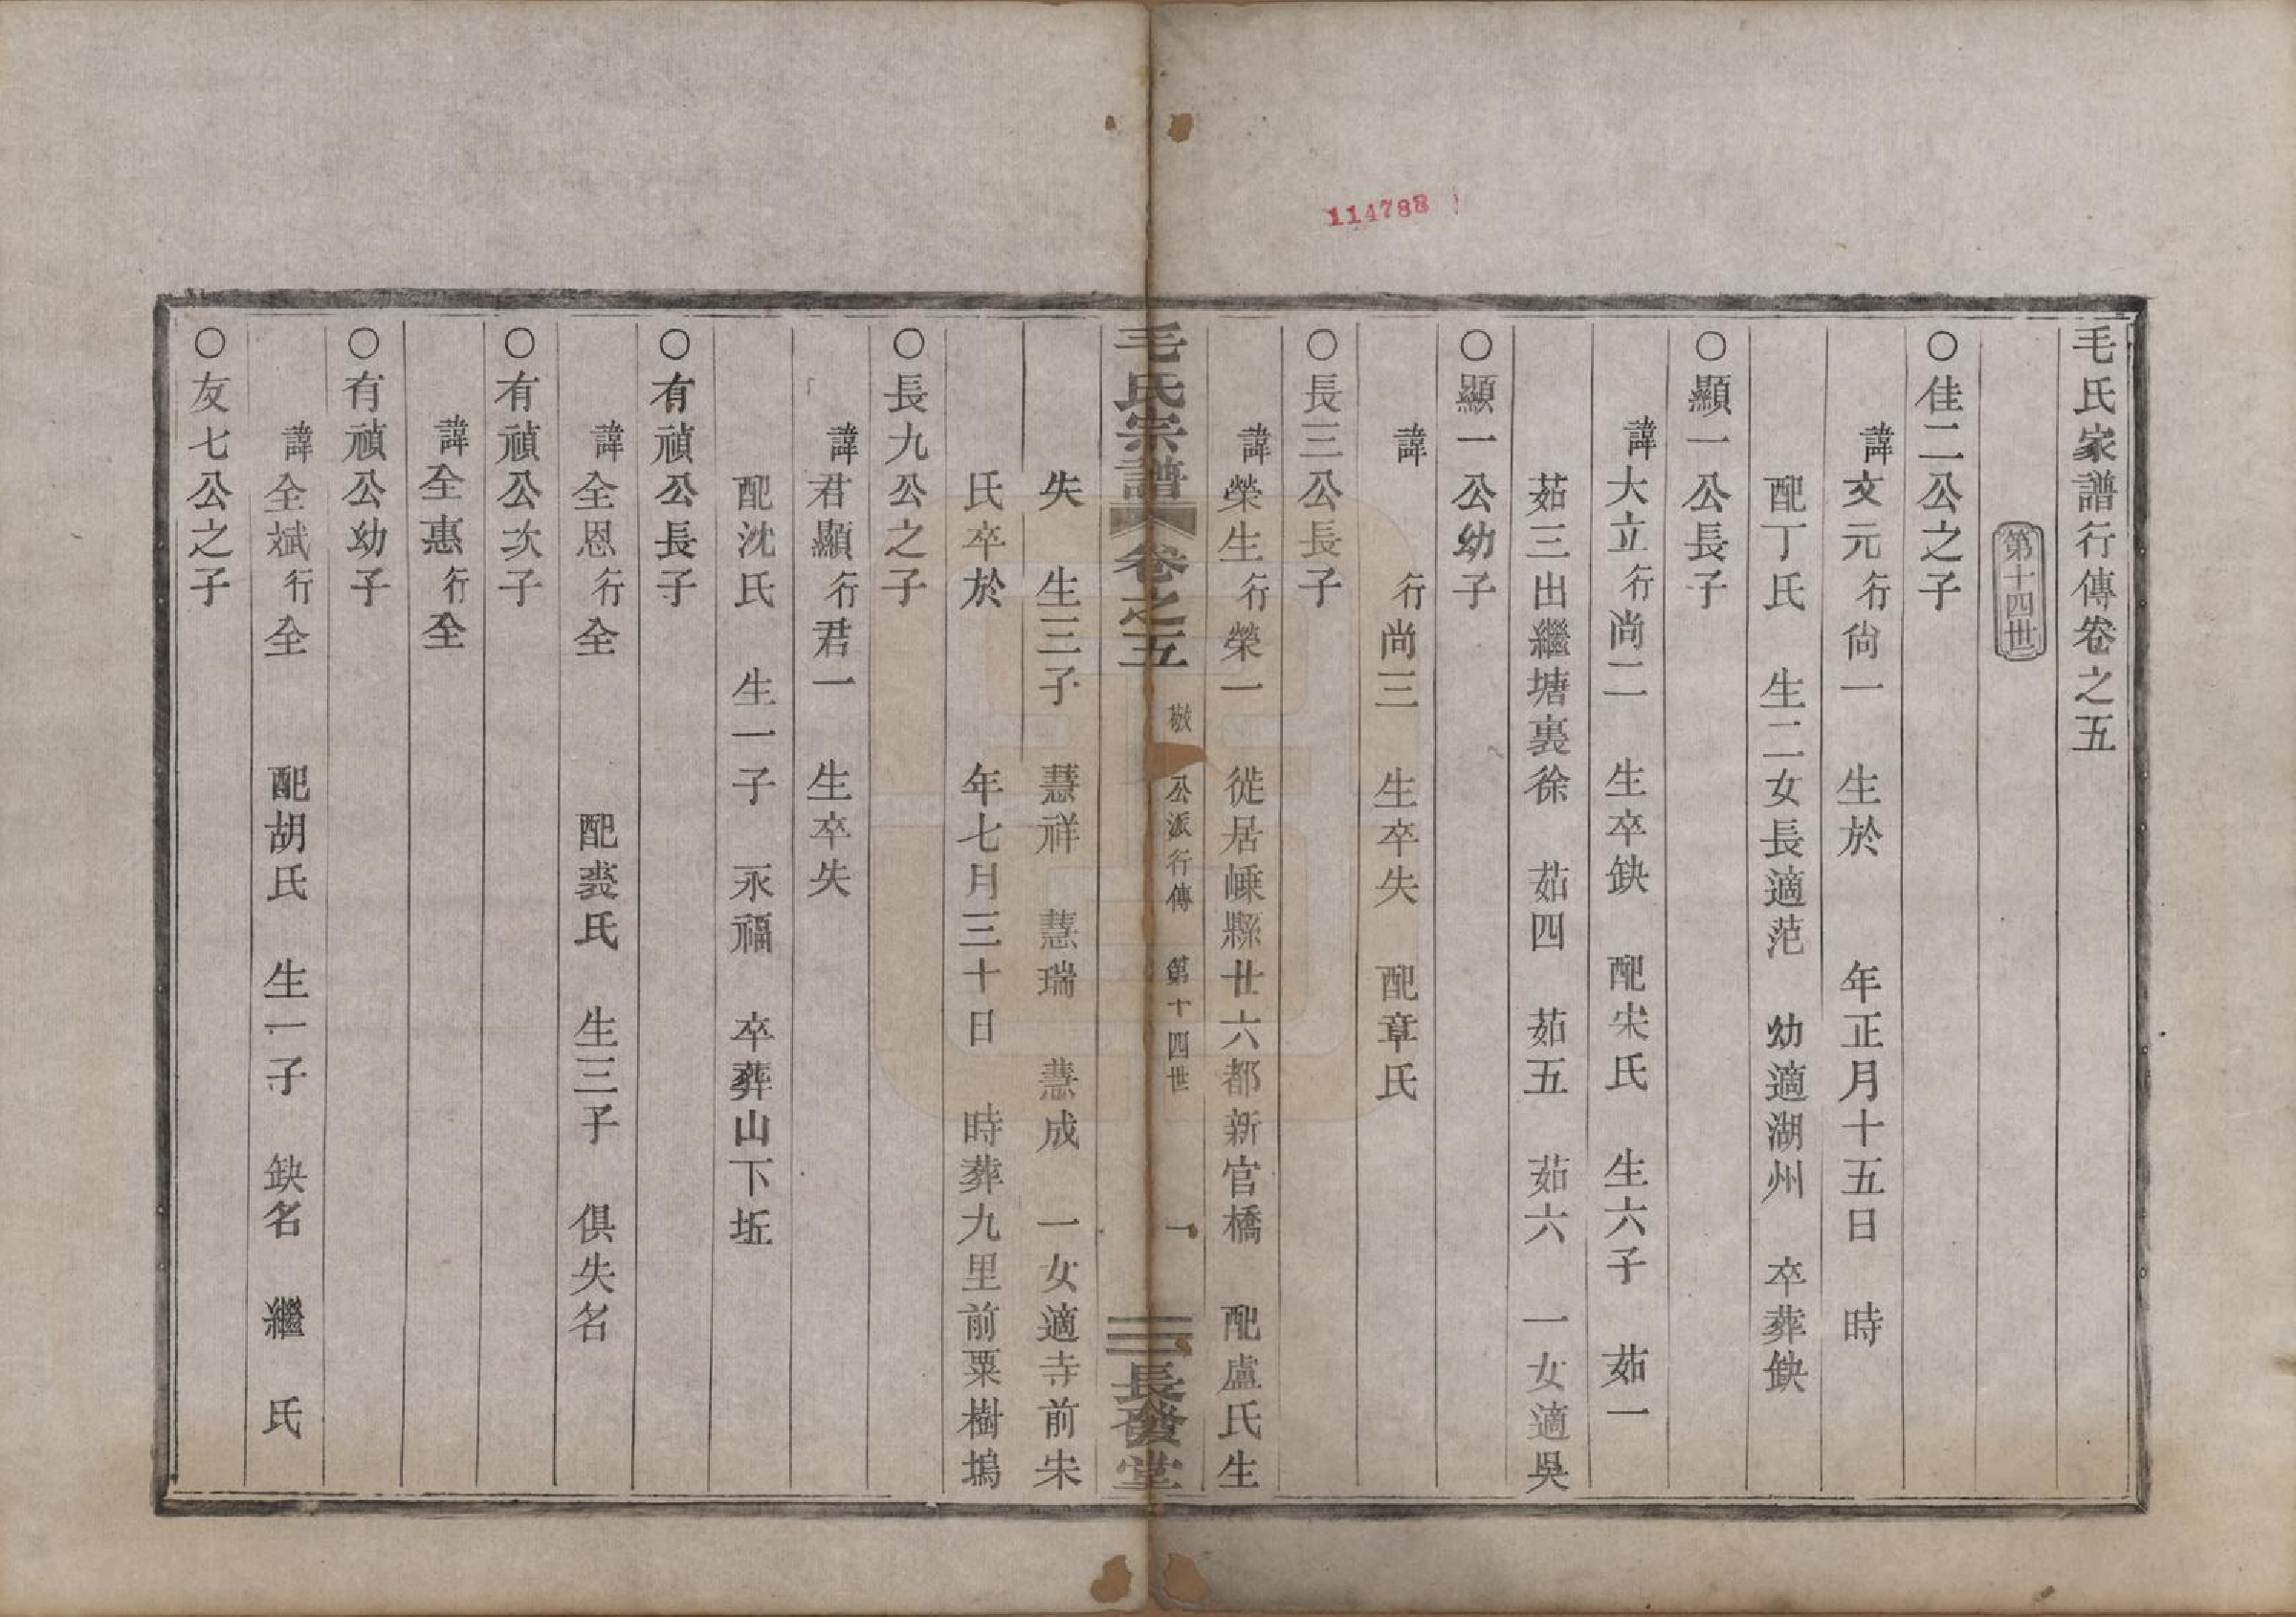 114788
毛氏家譜行傳卷之五
第十四世
○佳二公之子
諱文元行尙一 生於 年正月十五日 時
配丁氏 生二女長適范 幼適湖州 卒葬缺
○顯一公長子
諱大立行尚二 生卒缺 配宋氏 生六子 茹一
茹三出繼塘裏徐 茹四 茹五 茹六 一女適吳
○顯一公幼子
諱 行尚三 生卒失 配章氏
○長三公長子
諱榮生行榮一 徙居嵊縣廿六都新官橋 配盧氏生
毛氏宗譜 卷之五 敬 公派行傳 第十四世 一 長發堂
失 生三子 慧祥 慧瑞 慧成 一女適寺前朱
氏卒於 年七月三十日 時葬九里前粟樹塢
○長九公之子
諱君顯行君一 生卒失
配沈氏 生一子 永福 卒葬山下坵
○有禎公長子
諱全恩行全 配裘氏 生三子 俱失名
○有禎公次子
諱全惠行全
○有禎公幼子
諱全斌行全 配胡氏 生一子 缺名 繼 氏
○友七公之子